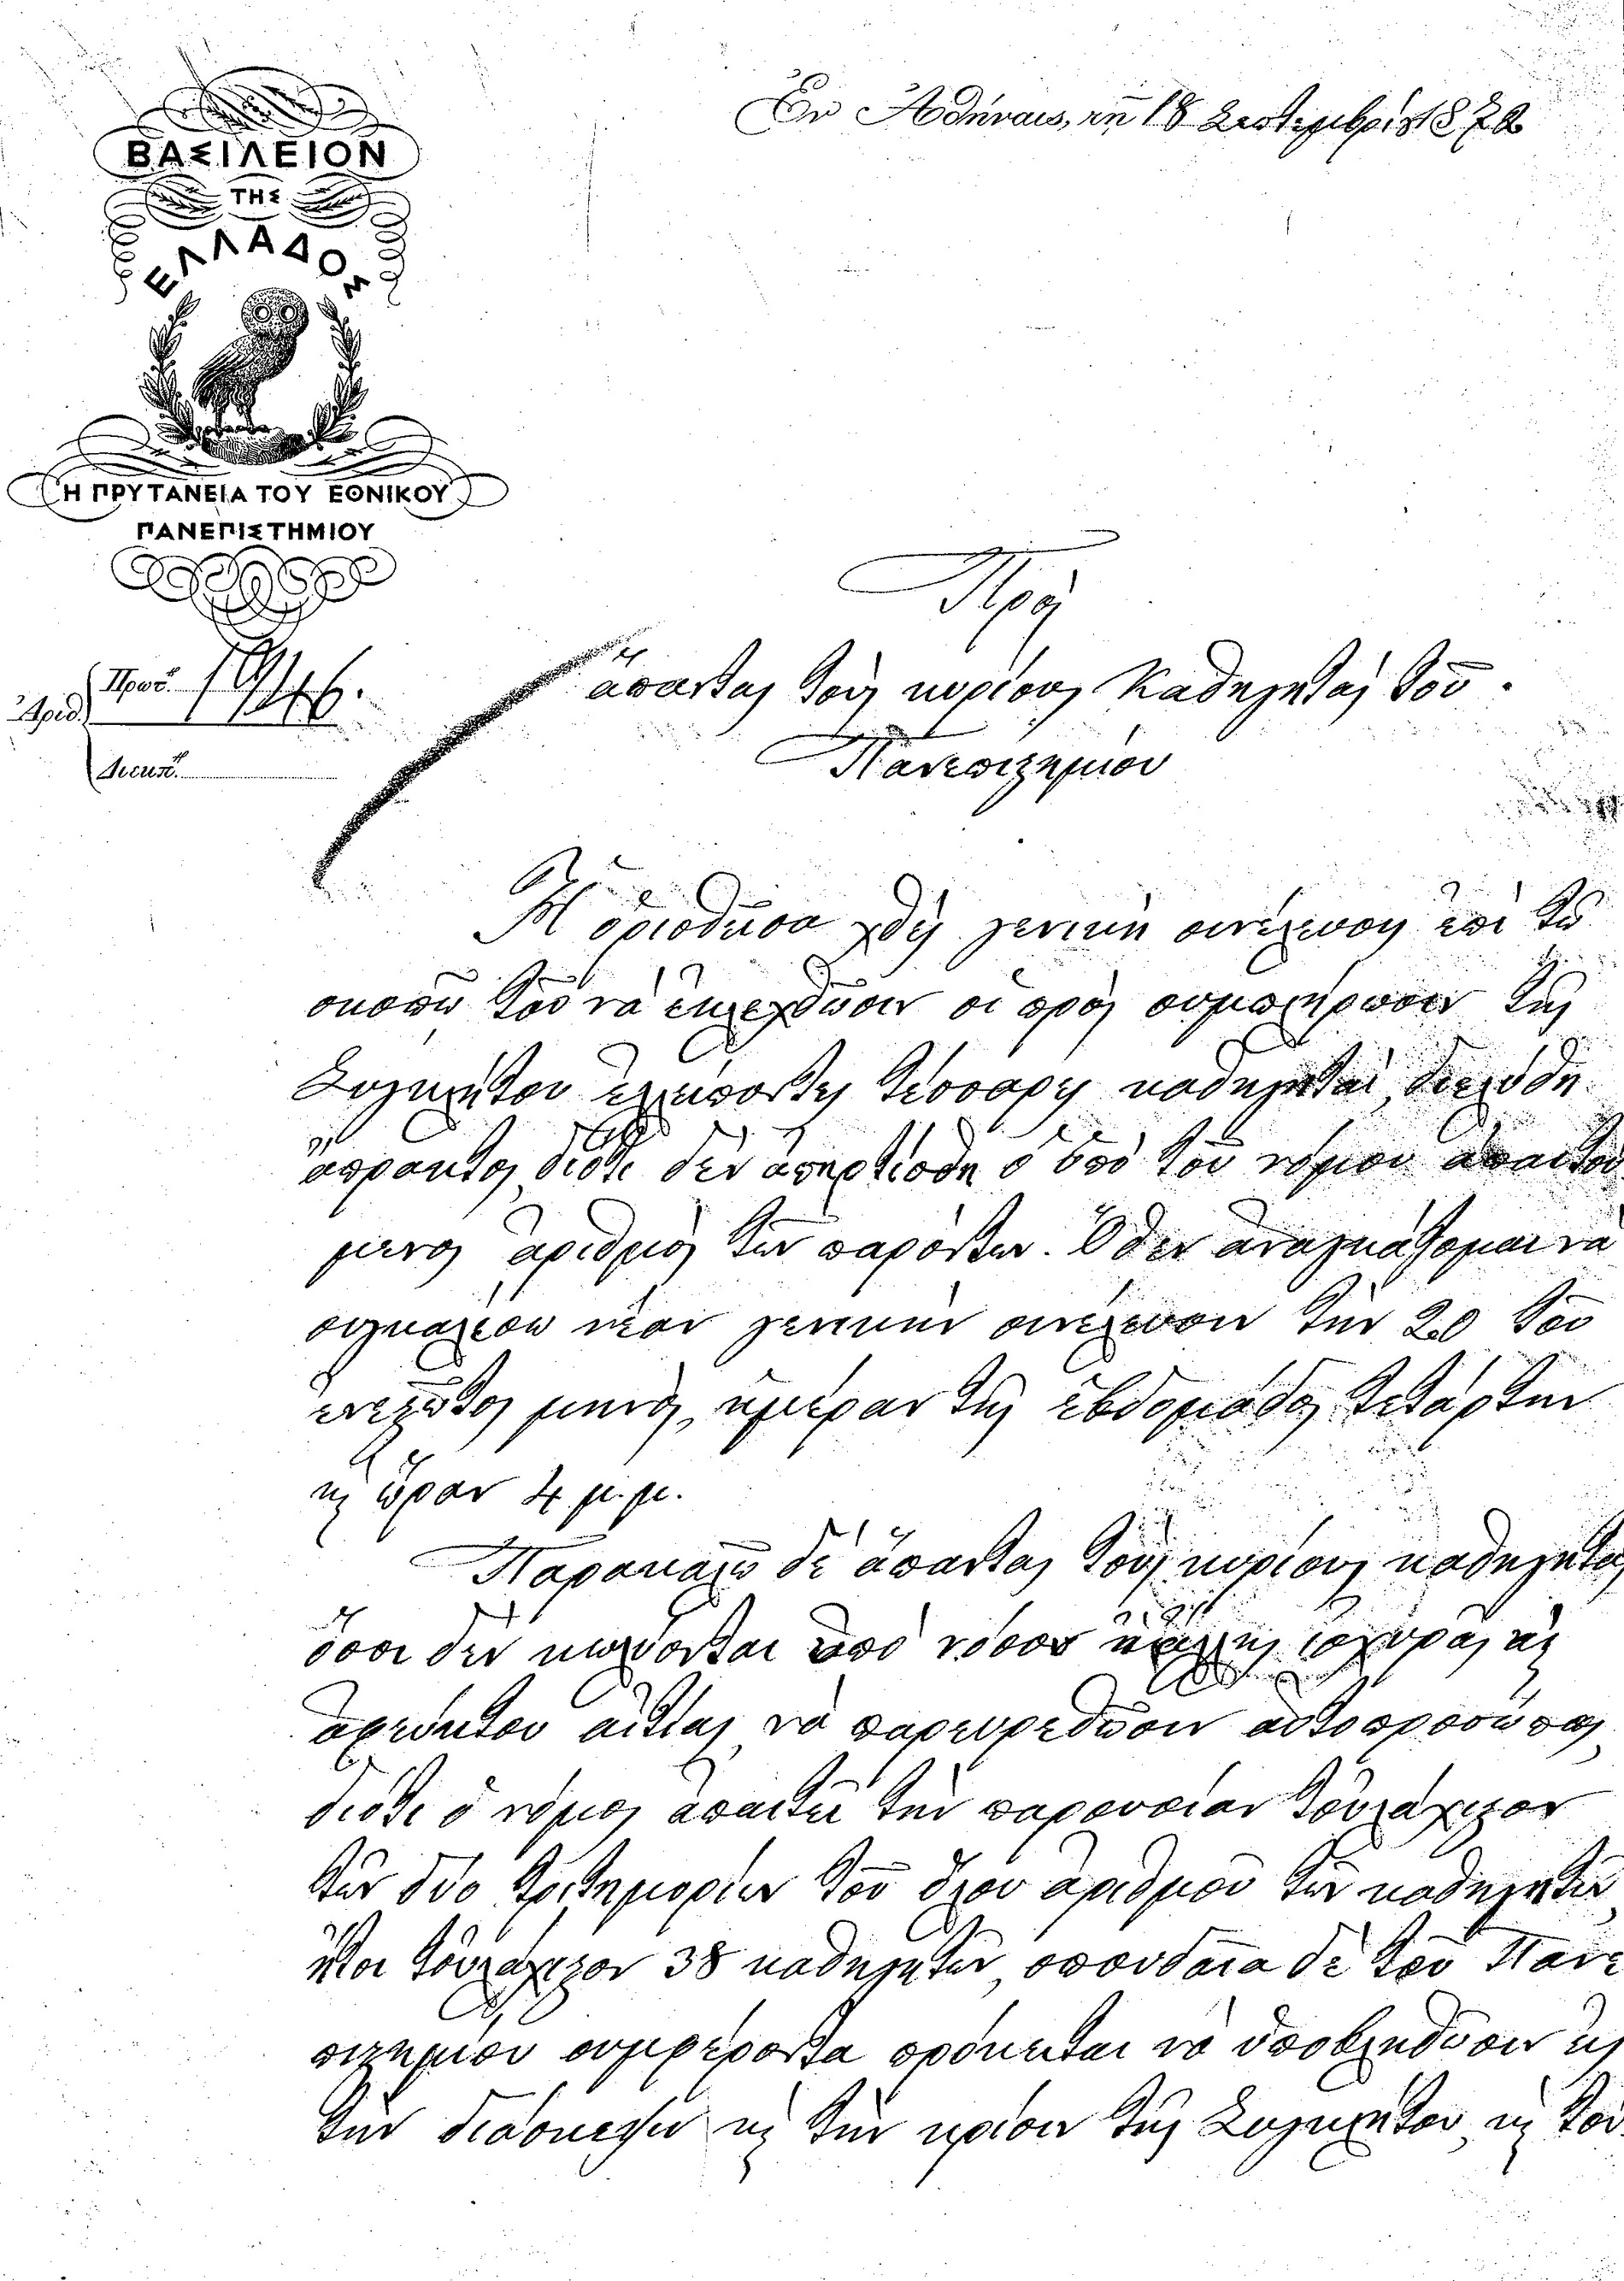 Ἐν Ἀθήναις, τῇ 18 Σεπτεμβρίου 1872
ΒΑΣΙΛΕΙΟΝ
ΤΗΣ
ΕΛΛΑΔΟΣ
Ἡ ΠΡΥΤΑΝΕΙΑ ΤΟΥ ΕΘΝΙΚΟΥ
ΠΑΝΕΠΙΣΤΗΜΙΟΥ
Πρὸς
Ἀριθ. Πρωτ.
ἅπαντας τοὺς κυρίους Καθηγητὰς τοῦ
Πανεπιστημίου
Διεκπ.
Ἡ ὁρισθεῖσα χθὲς γενικὴ συνέλευσις ἐπὶ τῷ
σκοπῷ τοῦ νὰ ἐκλεχθῶσιν οἱ πρὸς συμπλήρωσιν τῆς
Συγκλήτου ἐλλείποντες τέσσαρες καθηγηταί, διελύθη
ἄπρακτος, διότι δὲν ἀπηρτίσθη ὁ ὑπὸ τοῦ νόμου ἀπαιτού
μενος ἀριθμὸς τῶν παρόντων. Ὅθεν ἀναγκάζομαι νὰ
συγκαλέσω νέαν γενικὴν συνέλευσιν τὴν 20 τοῦ
ἐνεστῶτος μηνός, ἡμέραν τῆς ἑβδομάδος Τετάρτην
κ ὥραν 4 μ.μ.
Παρακαλῶ δὲ ἅπαντας τοὺς κυρίους καθηγητὰς
ὅσοι δὲν κωλύονται ὑπὸ νόσου ἢ ἄλλης ἰσχυρᾶς κ
ἀφεύκτου αἰτίας, νὰ παρευρεθῶσιν αὐτοπροσώπως,
διότι ὁ νόμος ἀπαιτεῖ τὴν παρουσίαν τοὐλάχιστον
τῶν δύο τριτημορίων τοῦ ὅλου ἀριθμοῦ τῶν καθηγητῶν,
ἤτοι τοὐλάχιστον 38 καθηγητῶν, σπουδαῖα δὲ τοῦ Πανε
πιστημίου συμφέροντα πρόκειται νὰ ὑποβληθῶσιν εἰς
τὴν διάσκεψιν κ τὴν κρίσιν τῆς Συγκλήτου, κ τοῦ